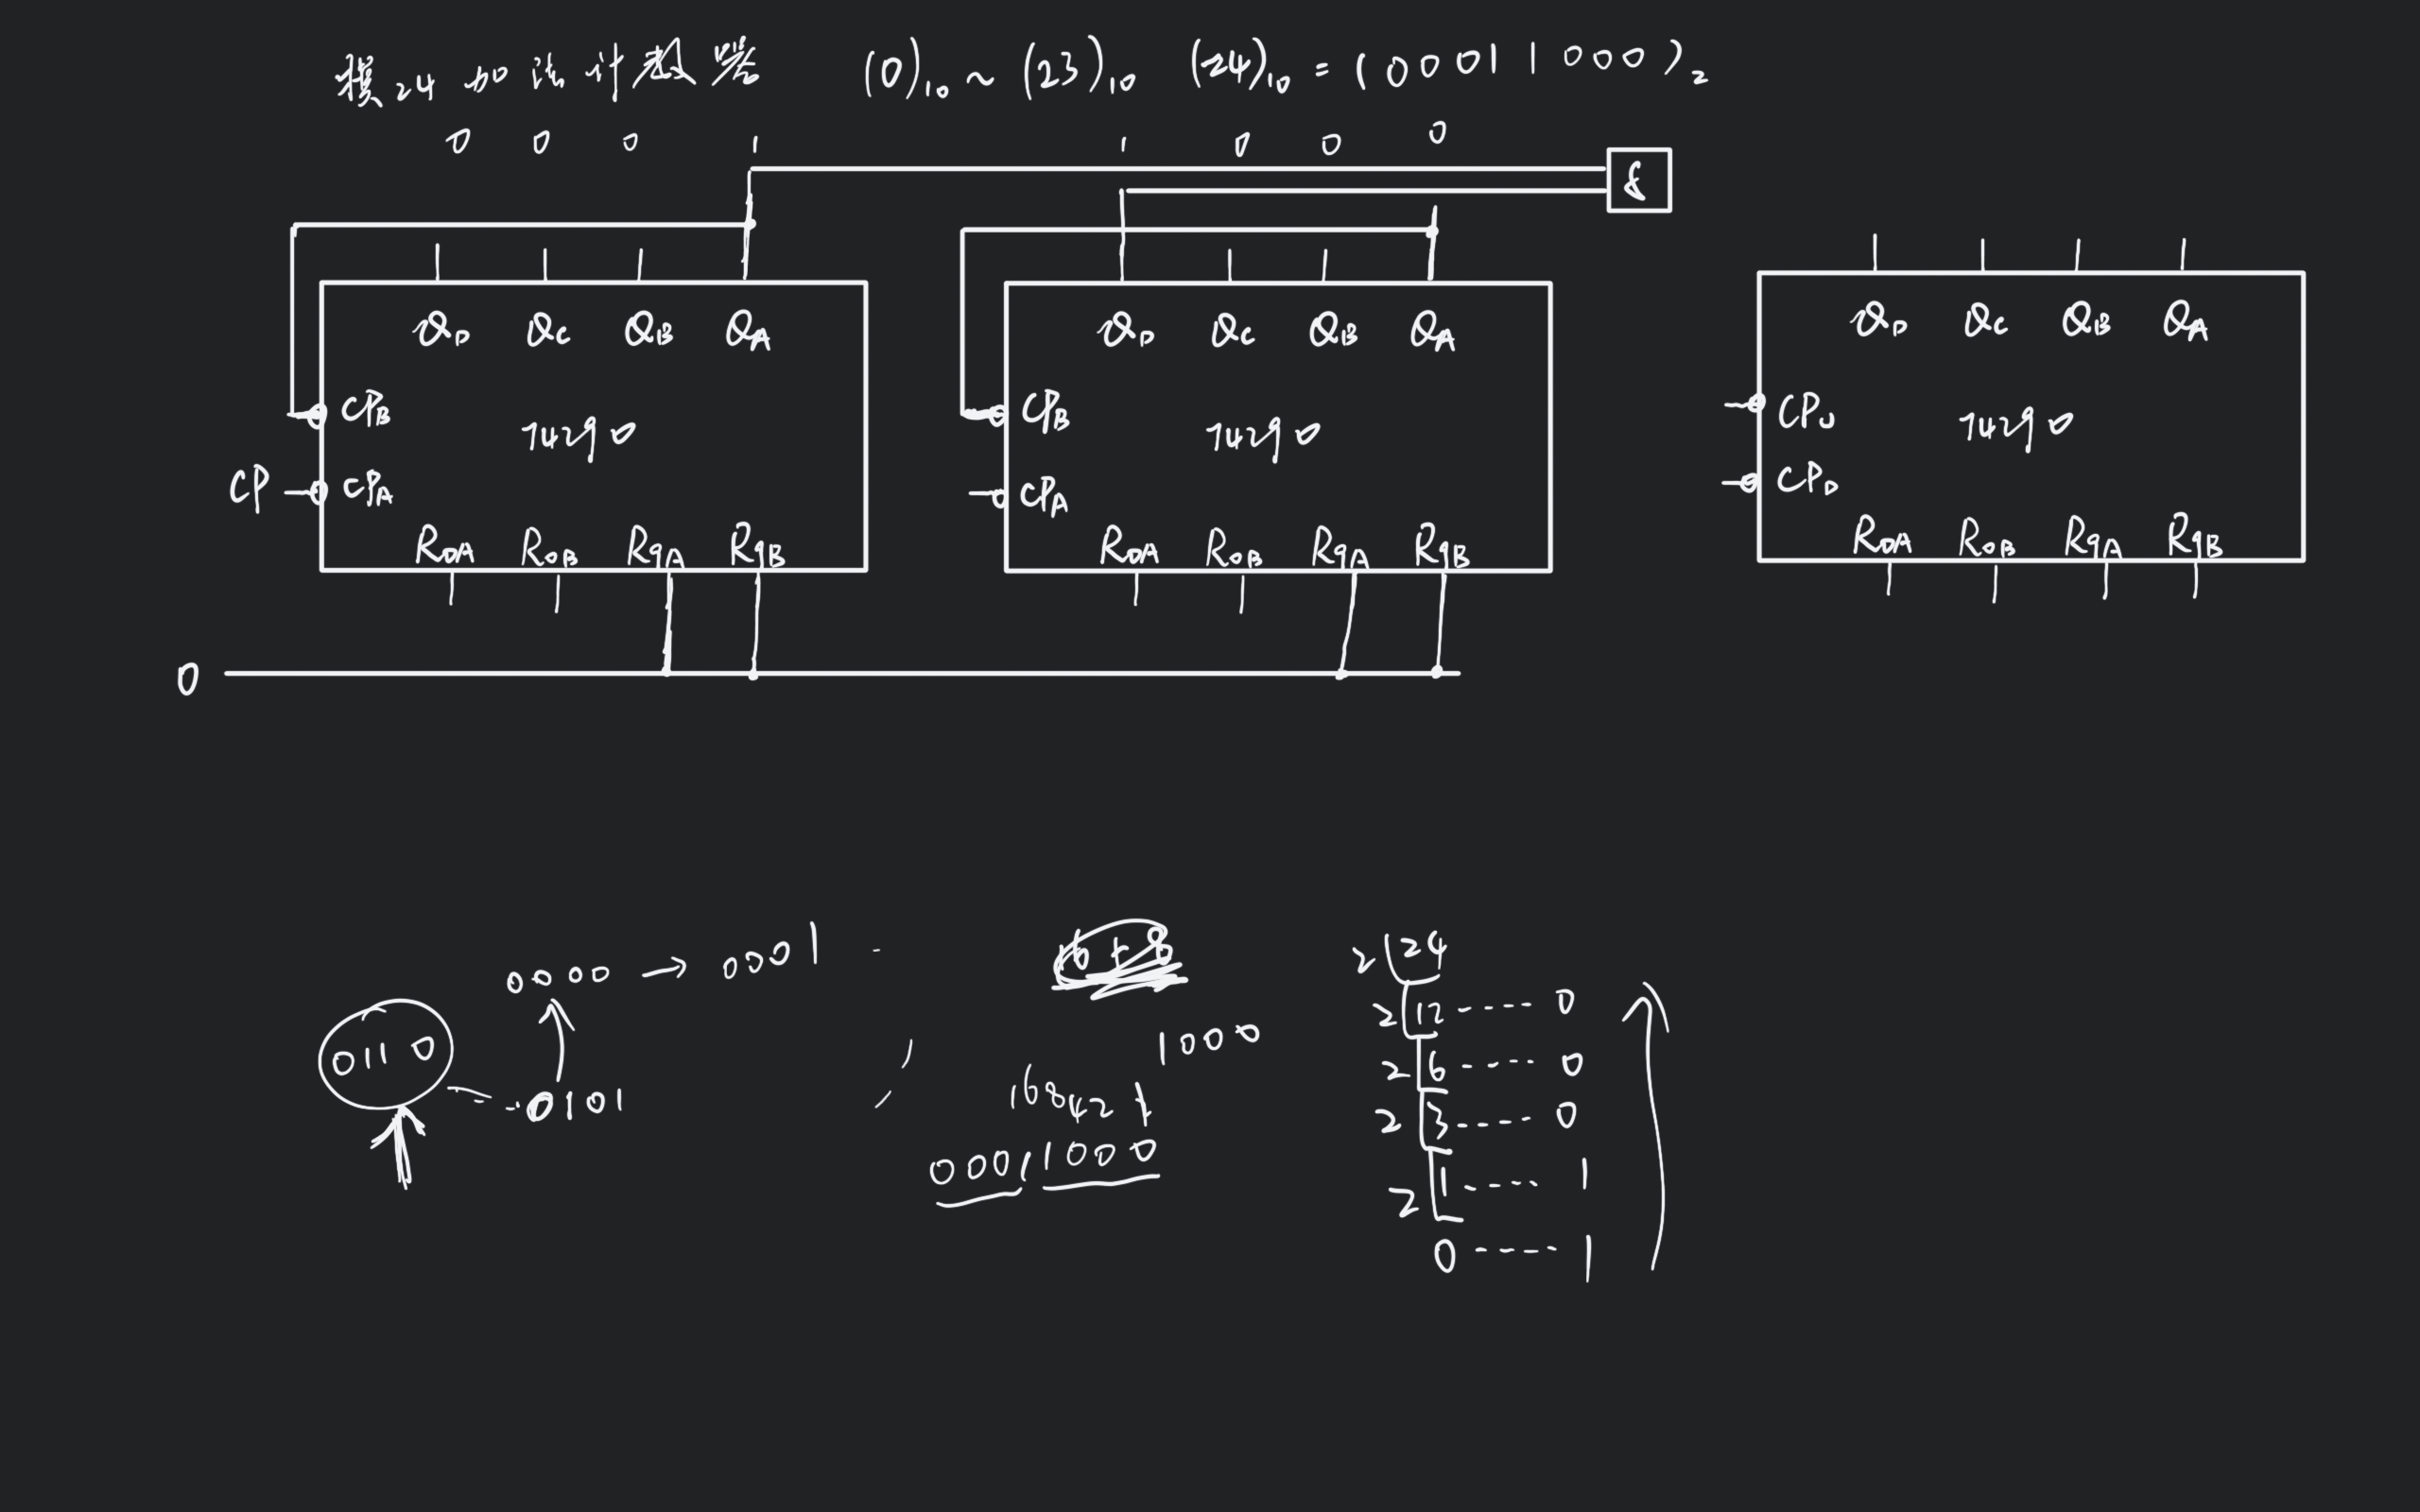 模24加法计数器 (0)₁₀ ~ (23)₁₀ (24)₁₀ = (00011000)₂
0 0 0 1 1 0 0 0
&
Q_D Q_C Q_B Q_A
CP_B
74290
CP CP_A
R_0A R_0B R_9A R_9B
Q_D Q_C Q_B Q_A
CP_B
74290
CP_A
R_0A R_0B R_9A R_9B
Q_D Q_C Q_B Q_A
CP_U
74290
CP_D
R_0A R_0B R_9A R_9B
0
0000 → 0001
0110
0101
16+8
1000
16 8 4 2 1
0001 1000
2 24
2 12 ---- 0
2 6 ---- 0
2 3 ---- 0
2 1 ---- 1
0 ---- 1